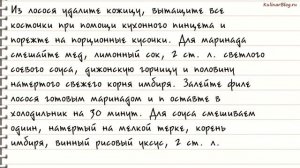 KulinarBlog.ru
Из лосося удалите кожицу, вытащите все
косточки при помощи кухонного пинцета и
порежте на порционные кусочки. Для маринада
смешайте мед, лимонный сок, 2 ст. л. светлого
соевого соуса, дижонскую горчицу и половину
натертого свежего корня имбиря. Залейте филе
лосося готовым маринадом и п оставте в
холодильник на 30 минут. Для соуса смешиваем
одиин, натертый на мелкой терке, корень
имбиря, винный рисовый уксус, 2 ст. л.